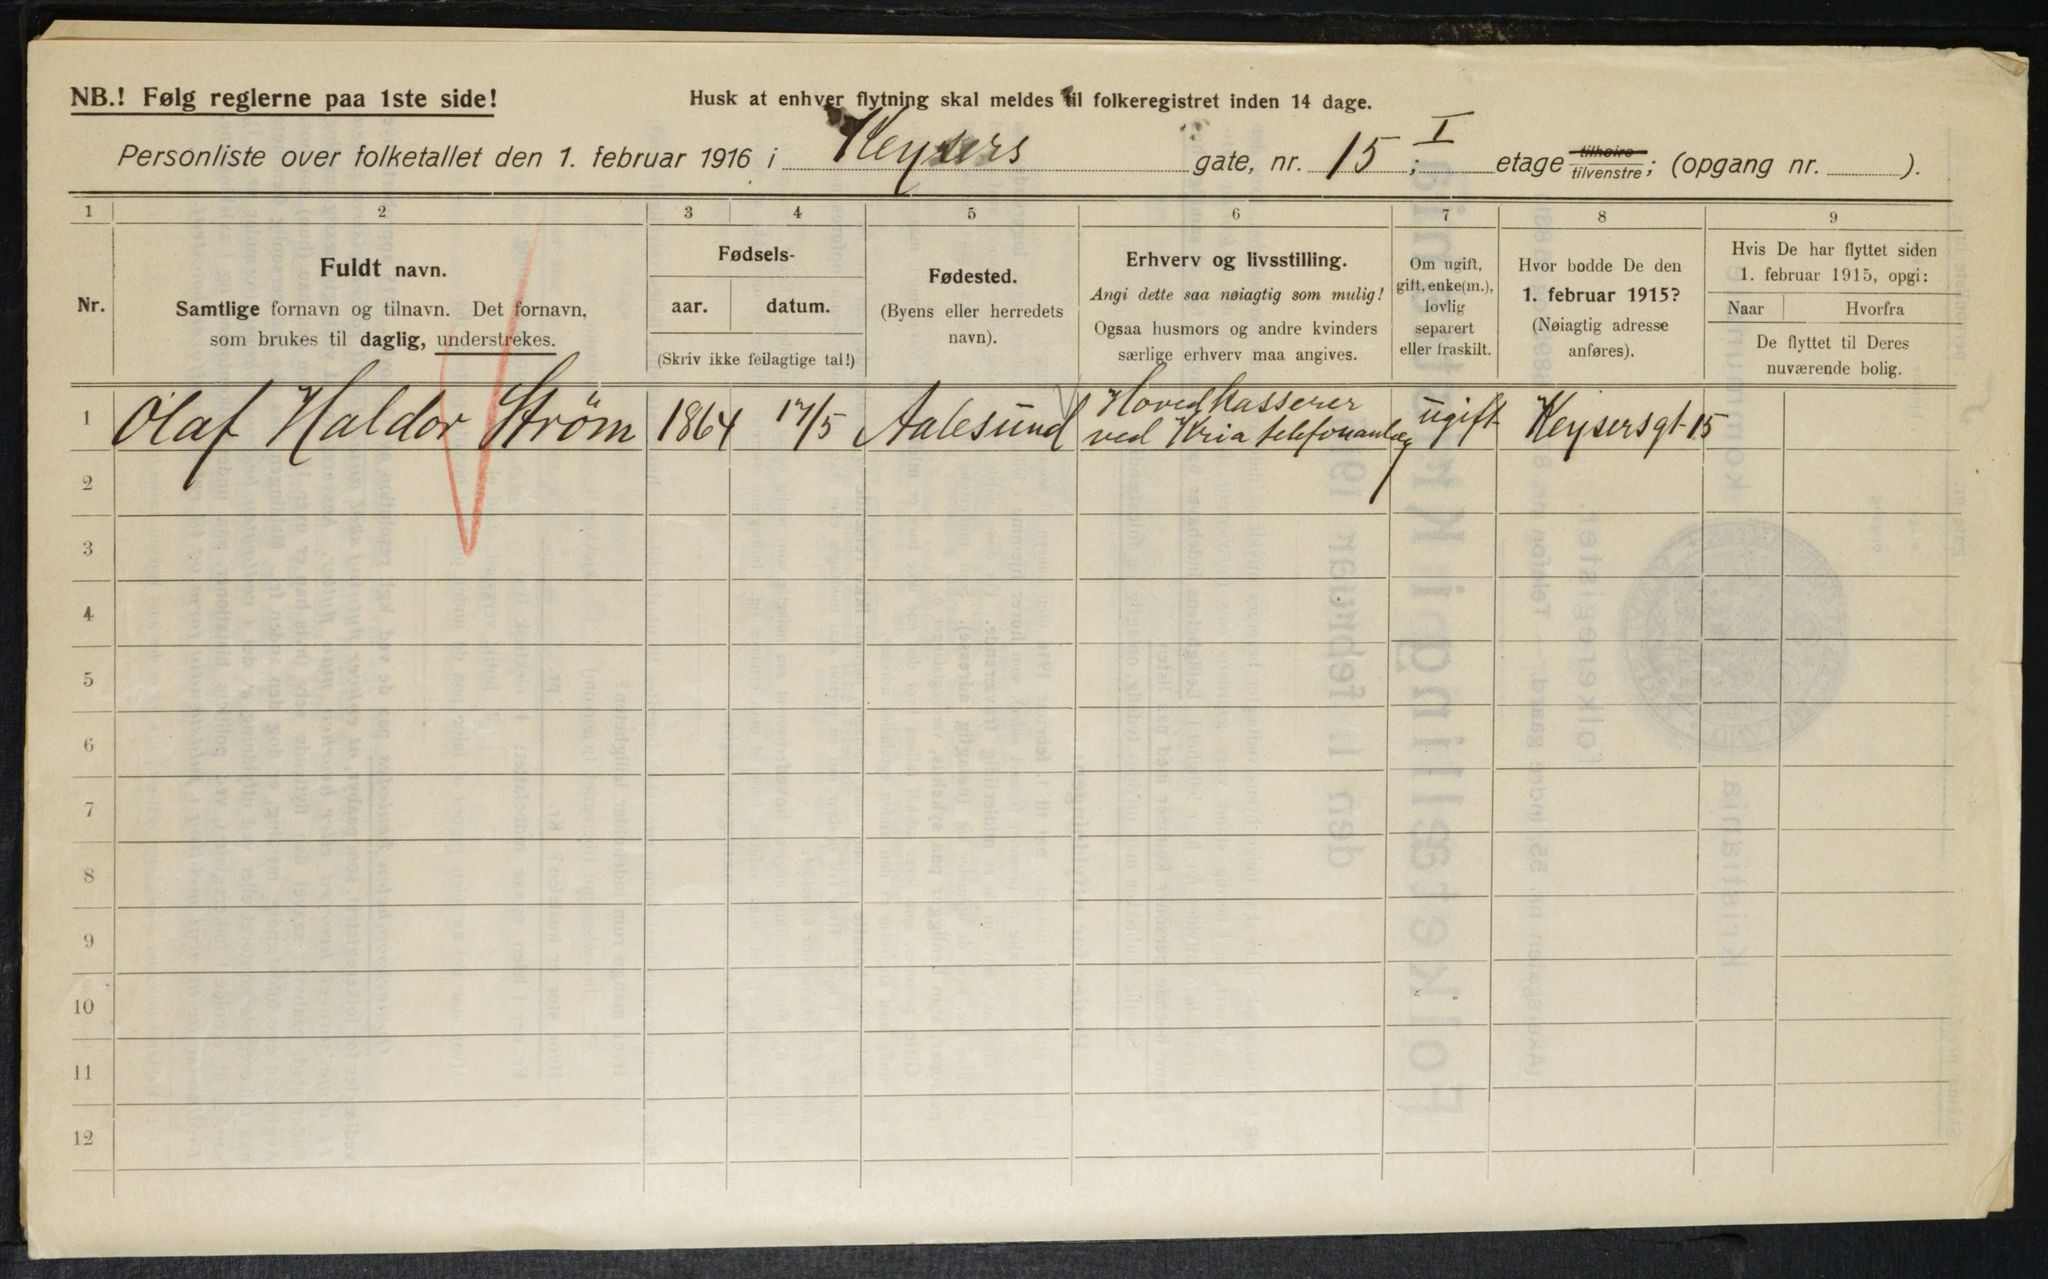 NB.! Følg reglerne paa 1ste side!
Husk at enhver flytning skal meldes til folkeregistret inden 14 dage.
Personliste over folketallet den 1. februar 1916 i Keysers gate, nr. 15; I etage tilhøire/tilvenstre; (opgang nr. ).
1 2 3 4 5 6 7 8 9
Nr.
Fuldt navn.
Samtlige fornavn og tilnavn. Det fornavn,
som brukes til daglig, understrekes.
Fødsels-
aar. datum.
(Skriv ikke feilagtige tal!)
Fødested.
(Byens eller herredets
navn).
Erhverv og livsstilling.
Angi dette saa nøiagtig som mulig!
Ogsaa husmors og andre kvinders
særlige erhverv maa angives.
Om ugift,
gift, enke(m.),
lovlig
separert
eller fraskilt.
Hvor bodde De den
1. februar 1915?
(Nøiagtig adresse
anføres).
Hvis De har flyttet siden
1. februar 1915, opgi:
Naar Hvorfra
De flyttet til Deres
nuværende bolig.
1 Olaf Haldor Strøm 1864 17/5 Aalesund Hovedkasserer
ved Kria telefonanlæg ugift Keysersgt 15
2
3
4
5
6
7
8
9
10
11
12